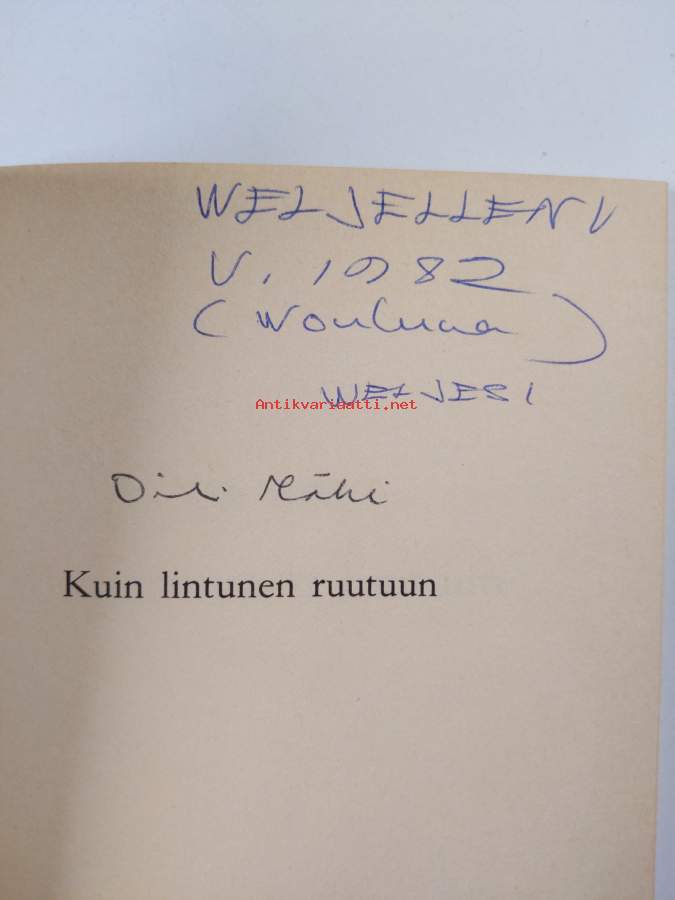 WELJELLENI
V. 1982
(Wouluna)
WELJESI
Antikvariaatti.net
Mäki
Kuin lintunen ruutuun